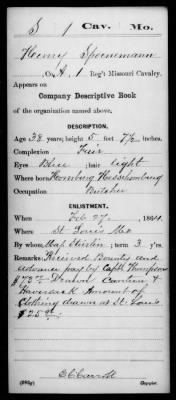 S | 1 | Cav. | Mo.
Spoenemann
, Co. H, 1 Reg't Missouri Cavalry.
Appears on
Company Descriptive Book
of the organization named above.
DESCRIPTION.
Age 38 years; height 5 feet 7½ inches.
Complexion Fair
Eyes Blue ; hair light
Where born
Occupation Butcher
ENLISTMENT.
When Feb 27, 1864.
Where St Louis Mo
By whom ; term 3 y'rs.
Remarks: Received Bounty and
advance pay by Capt Thompson
$73 Drawn Canteen &
Haversack Amount of
Clothing drawn at St Louis
$25
Copyist.